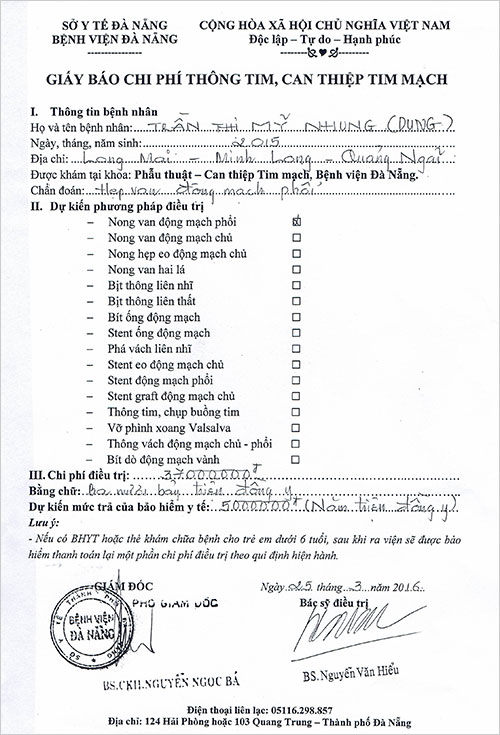 SỞ Y TẾ ĐÀ NẴNG
BỆNH VIỆN ĐÀ NẴNG
CỘNG HÒA XÃ HỘI CHỦ NGHĨA VIỆT NAM
Độc lập – Tự do – Hạnh phúc
GIẤY BÁO CHI PHÍ THÔNG TIM, CAN THIỆP TIM MẠCH
I. Thông tin bệnh nhân
Họ và tên bệnh nhân: TRẦN THỊ MỸ NHUNG (DUNG)
Ngày, tháng, năm sinh: 2015
Địa chỉ: Long Mai - Minh Long - Quảng Ngãi
Được khám tại khoa: Phẫu thuật – Can thiệp Tim mạch, Bệnh viện Đà Nẵng.
Chẩn đoán: Hẹp van động mạch phổi
II. Dự kiến phương pháp điều trị
– Nong van động mạch phổi ☑
– Nong van động mạch chủ ☐
– Nong hẹp eo động mạch chủ ☐
– Nong van hai lá ☐
– Bịt thông liên nhĩ ☐
– Bịt thông liên thất ☐
– Bít ống động mạch ☐
– Stent ống động mạch ☐
– Phá vách liên nhĩ ☐
– Stent eo động mạch chủ ☐
– Stent động mạch phổi ☐
– Stent graft động mạch chủ ☐
– Thông tim, chụp buồng tim ☐
– Vỡ phình xoang Valsalva ☐
– Thông vách động mạch chủ - phổi ☐
– Bít dò động mạch vành ☐
III. Chi phí điều trị: 37000000đ
Bằng chữ: ba mươi bảy triệu đồng y
Dự kiến mức trả của bảo hiểm y tế: 5000000đ (Năm triệu đồng y)
Lưu ý:
- Nếu có BHYT hoặc thẻ khám chữa bệnh cho trẻ em dưới 6 tuổi, sau khi ra viện sẽ được bảo
hiểm thanh toán lại một phần chi phí điều trị theo qui định hiện hành.
Ngày 25 tháng 3 năm 2016
GIÁM ĐỐC
PHÓ GIÁM ĐỐC
Bác sỹ điều trị
SỞ Y TẾ THÀNH PHỐ ĐÀ NẴNG
BỆNH VIỆN
ĐÀ NẴNG
BS.CKII.NGUYỄN NGỌC BÁ
BS.Nguyễn Văn Hiếu
Điện thoại liên lạc: 05116.298.857
Địa chỉ: 124 Hải Phòng hoặc 103 Quang Trung – Thành phố Đà Nẵng